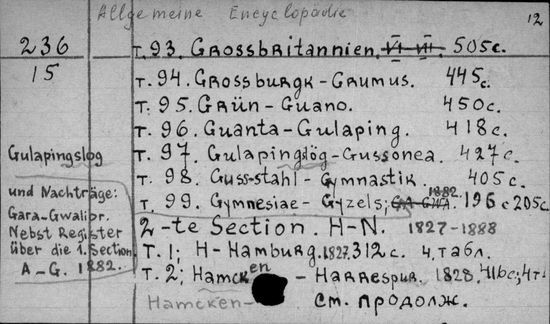 Allgemeine Encyclopädie 12
236 т. 93. Grossbritannien, VI-VII. 505с.
15 т. 94. Grossburgk-Grumus. 445с.
т. 95. Grün-Guano. 450с.
т. 96. Guanta-Gulaping. 418с.
Gulapingslög т. 97. Gulapingslög-Gussonea. 427с.
т. 98. Guss-stahl-Gymnastik. 405с.
und Nachträge: т. 99. Gymnesiae-Gyzels; 1882. 196с 205с.
Gara-Gwalior. 2-te Section. H-N. 1827-1888
Nebst Register
über die 1. Section т. 1; H-Hamburg. 1827. 312с. 4 табл.
A-G. 1882. т. 2; Hamcken - Harrespur. 1828. 416с; 4т.
Hamcken- См. продолж.